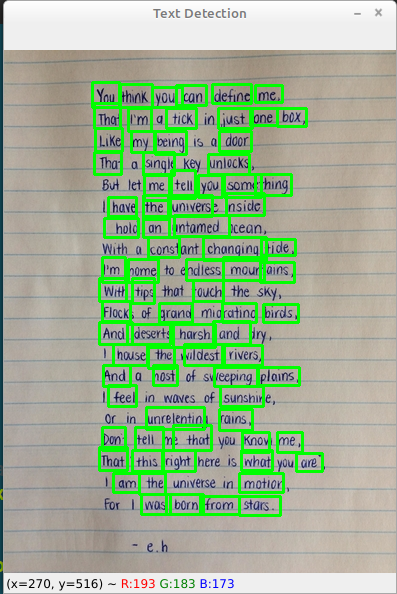 Text Detection
You think you can define me.
That I'm a tick in just one box,
Like my being is a door
That a single key unlocks,
But let me tell you something
I have the universe inside
I hold an untamed ocean,
With a constant changing tide,
I'm home to endless mountains,
With tips that touch the sky,
Flocks of grand migrating birds,
And deserts harsh and dry,
I house the wildest rivers,
And a host of sweeping plains,
I feel in waves of sunshine,
or in unrelenting rains,
Don't tell me that you know me,
That this right here is what you are",
I am the universe in motion,
For I was born from stars.
- e.h
(x=270, y=516) ~ R:193 G:183 B:173